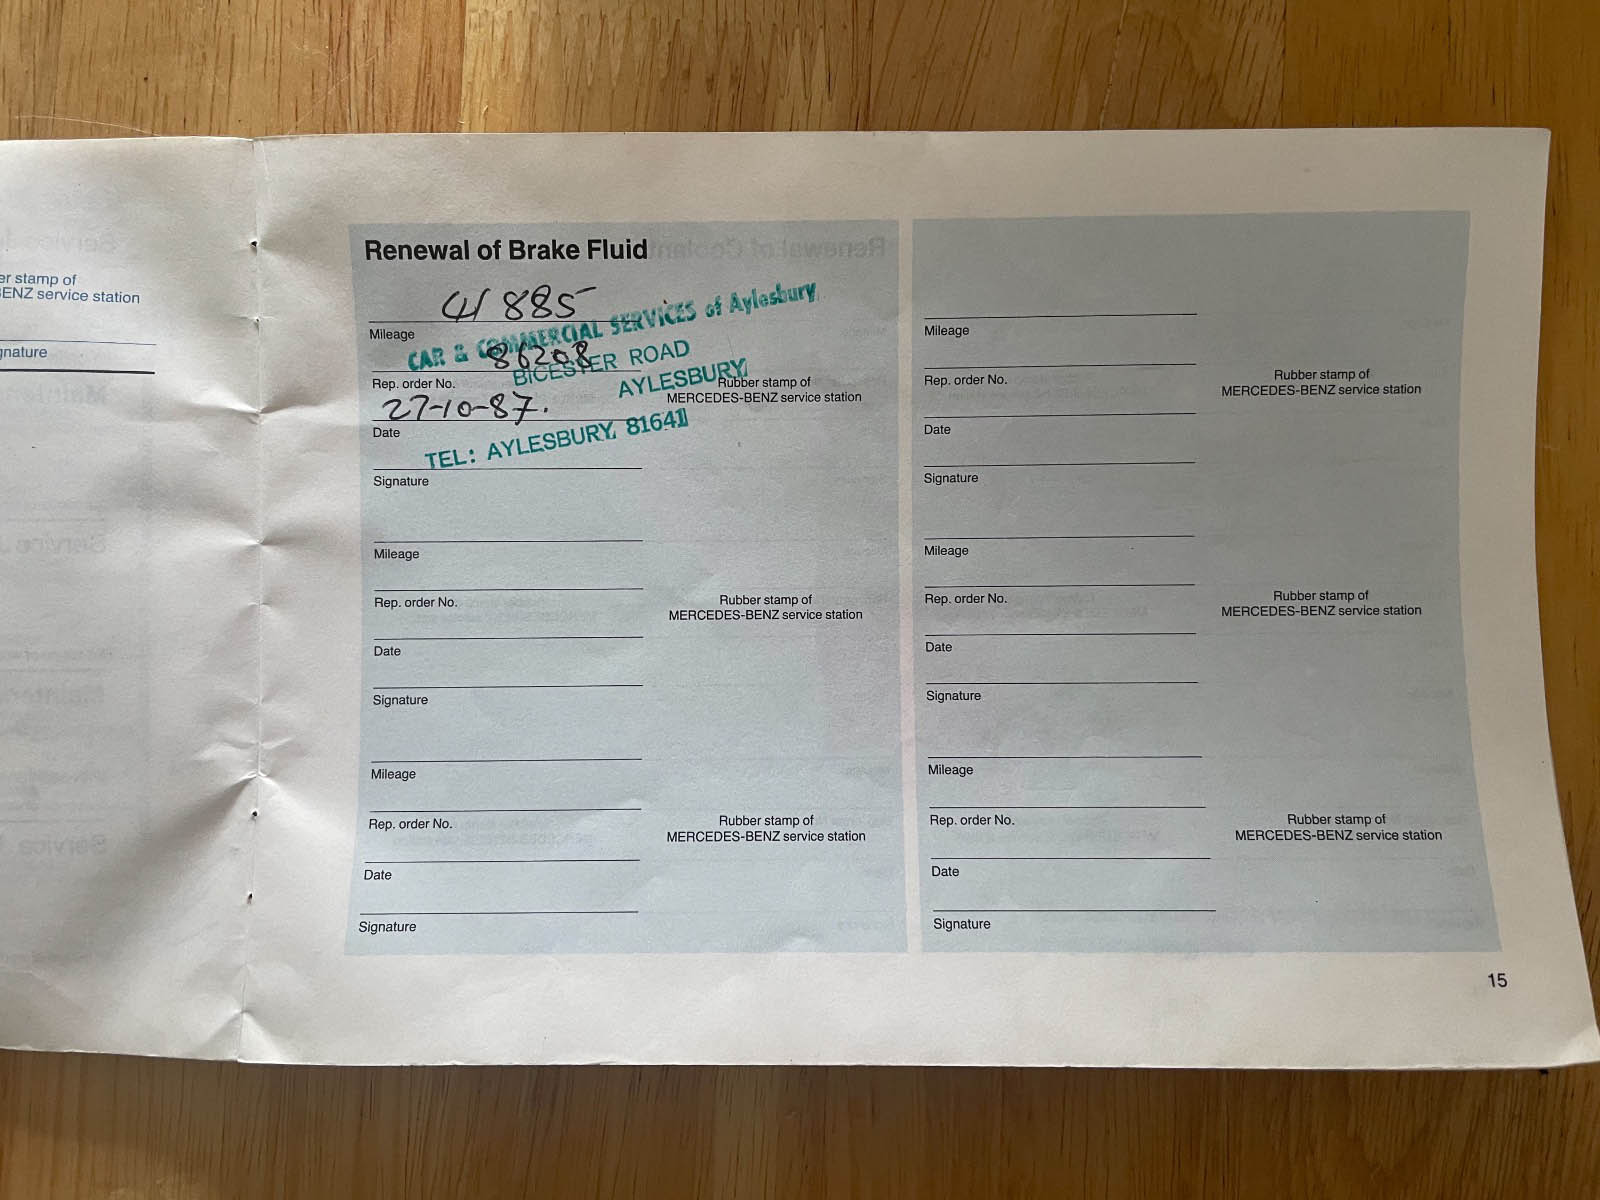 er stamp of
ENZ service station
gnature
Renewal of Brake Fluid
41 885
Mileage
CAR & COMMERCIAL SERVICES of Aylesbury
86208
BICESTER ROAD
Rep. order No.
AYLESBURY
Rubber stamp of
MERCEDES-BENZ service station
27-10-87.
Date
TEL: AYLESBURY, 81641
Signature
Mileage
Rep. order No.
Rubber stamp of
MERCEDES-BENZ service station
Date
Signature
Mileage
Rep. order No.
Rubber stamp of
MERCEDES-BENZ service station
Date
Signature
Mileage
Rep. order No.
Rubber stamp of
MERCEDES-BENZ service station
Date
Signature
Mileage
Rep. order No.
Rubber stamp of
MERCEDES-BENZ service station
Date
Signature
Mileage
Rep. order No.
Rubber stamp of
MERCEDES-BENZ service station
Date
Signature
15